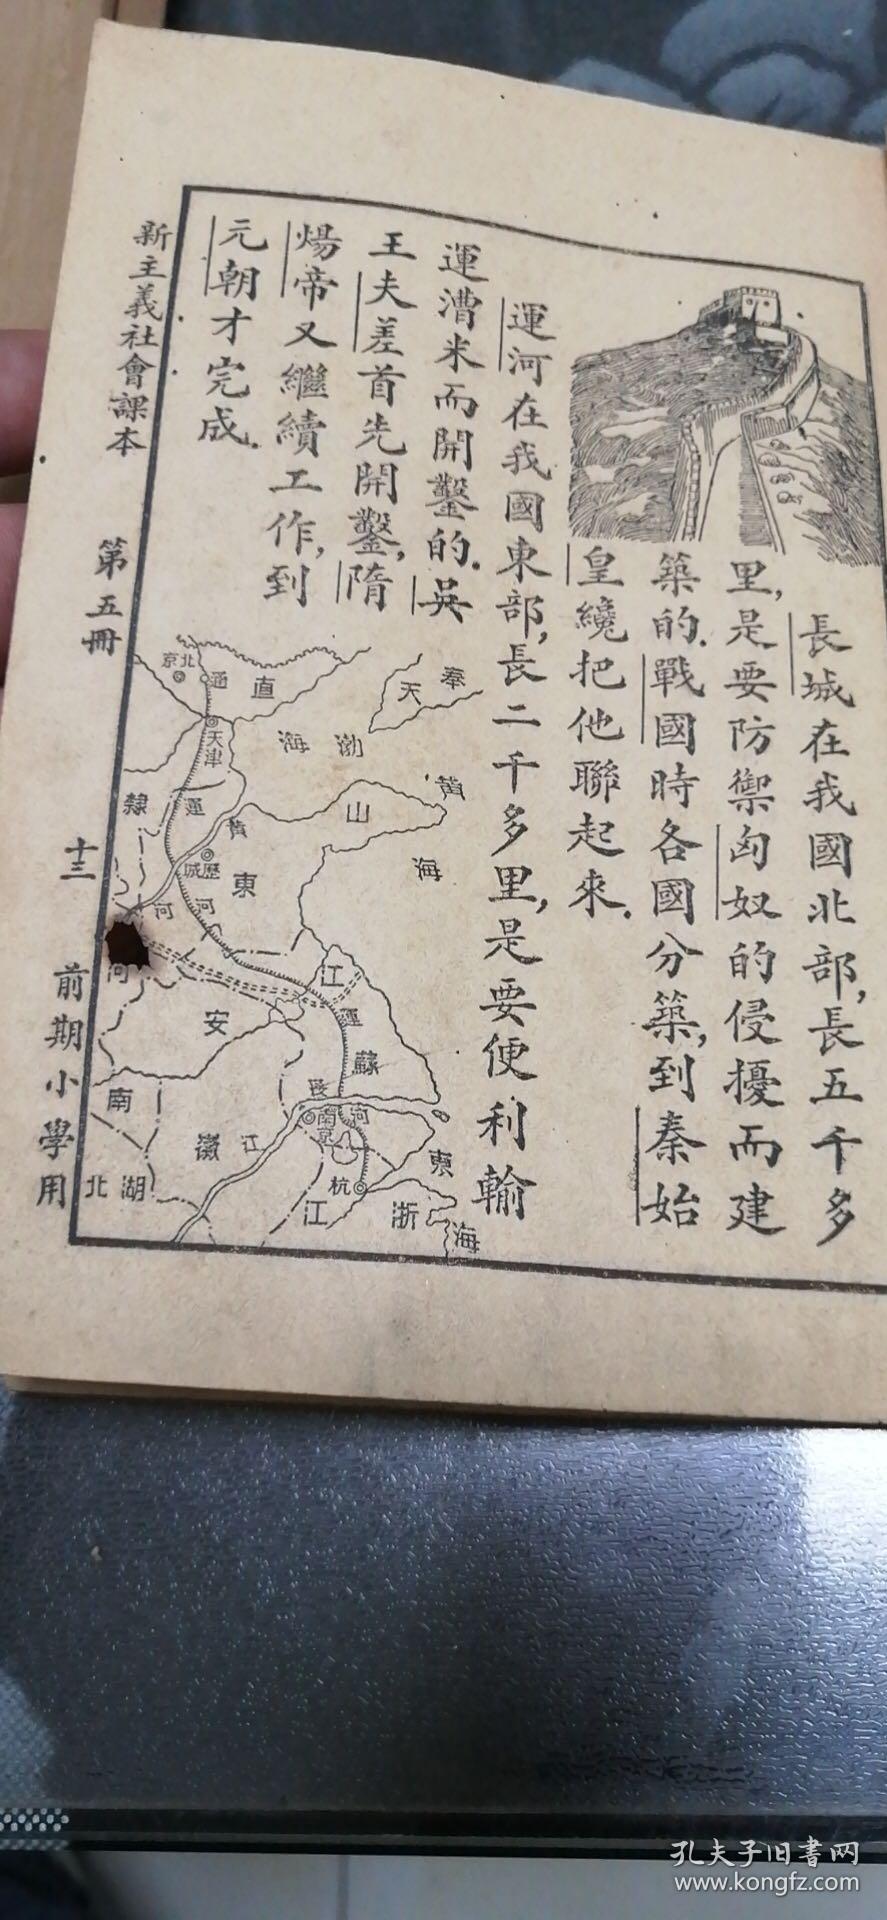 長城在我國北部,長五千多
里,是要防禦匈奴的侵擾而建
築的.戰國時各國分築,到秦始
皇纔把他聯起來.
運河在我國東部,長二千多里,是要便利輸
運漕米而開鑿的.吳
王夫差首先開鑿,隋
煬帝又繼續工作,到
元朝才完成.
奉天
直
北京
通
天津
渤海
黃海
隸
運
黃
山
歷城
東
河
河
河
江
安
運
蘇
南
長
南京
河
徽
江
東
湖北
杭
江
浙
海
新主義社會課本 第五冊 十三 前期小學用
孔夫子旧書网
www.kongfz.com